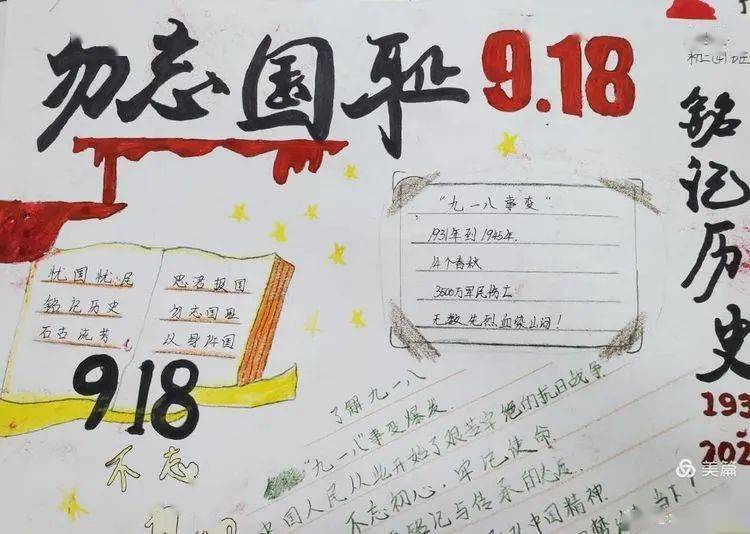 勿忘国耻 9.18
初二(4)班
铭记历史
193
~
202
"九一八事变"
1931年到1945年.
14个春秋
3500万军民伤亡
无数先烈血染山河!
忧国忧民
铭记历史
流芳
忠君报国
勿忘国耻
以身许国
918
不忘
了解九一八
"九一八"事变爆发
中国人民从此开始了艰苦卓绝的抗日战争
不忘初心,牢记使命
铭记与传承的
中国精神
当下!
美篇